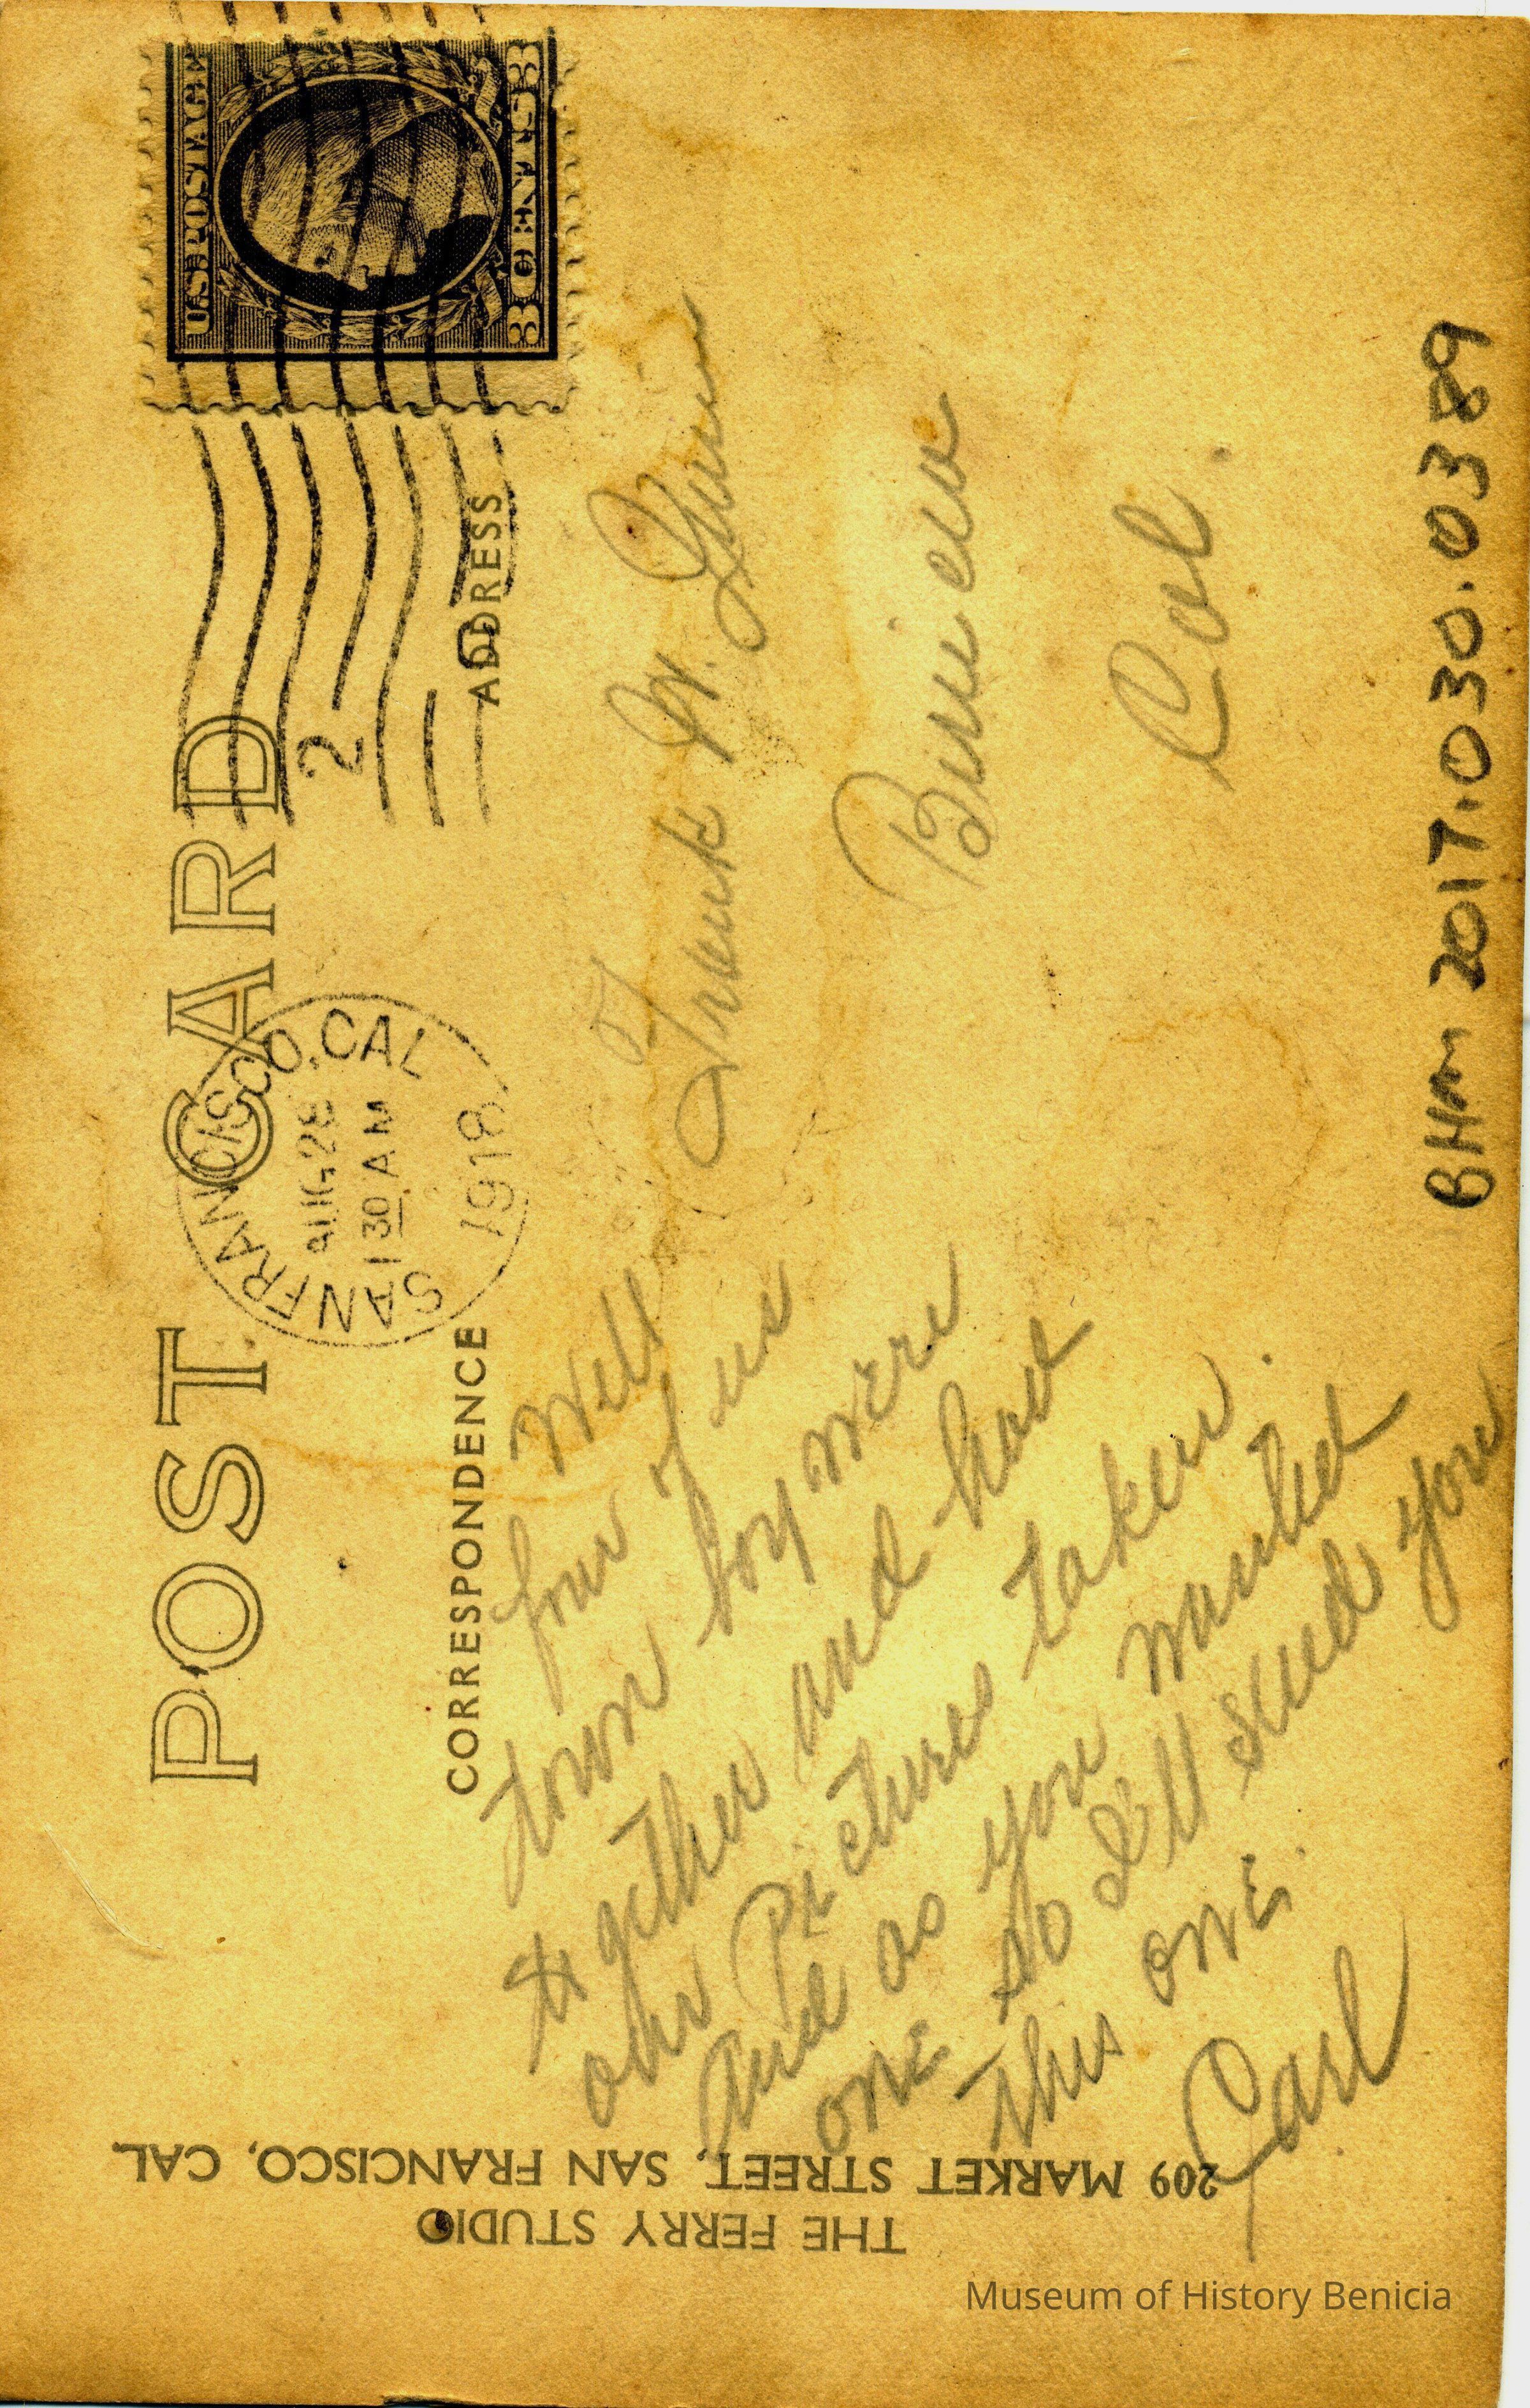 POST CARD
U.S. POSTAGE
3 CENTS 3
SAN FRANCISCO, CAL
AUG 28
1 30 AM
1918
2
CORRESPONDENCE
ADDRESS
Well
four of us
town boy were
together and had
our Pictures taken.
And as you wanted
one so I'll send you
this one.
Carl
Frank W.
Benicia
Cal.
THE FERRY STUDIO
209 MARKET STREET, SAN FRANCISCO, CAL.
BHM 2017.030.0389
Museum of History Benicia